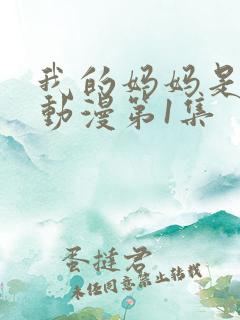 我的妈妈是
動漫第1集
蛋挞君
未经同意禁止转载